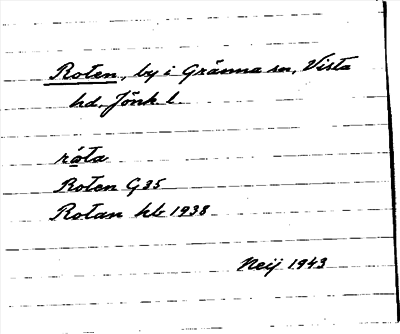 Roten, by i Gränna sn, Vista
hd, Jönk. l.
róta
Roten G 35
Rotan hb 1938
Neij 1943